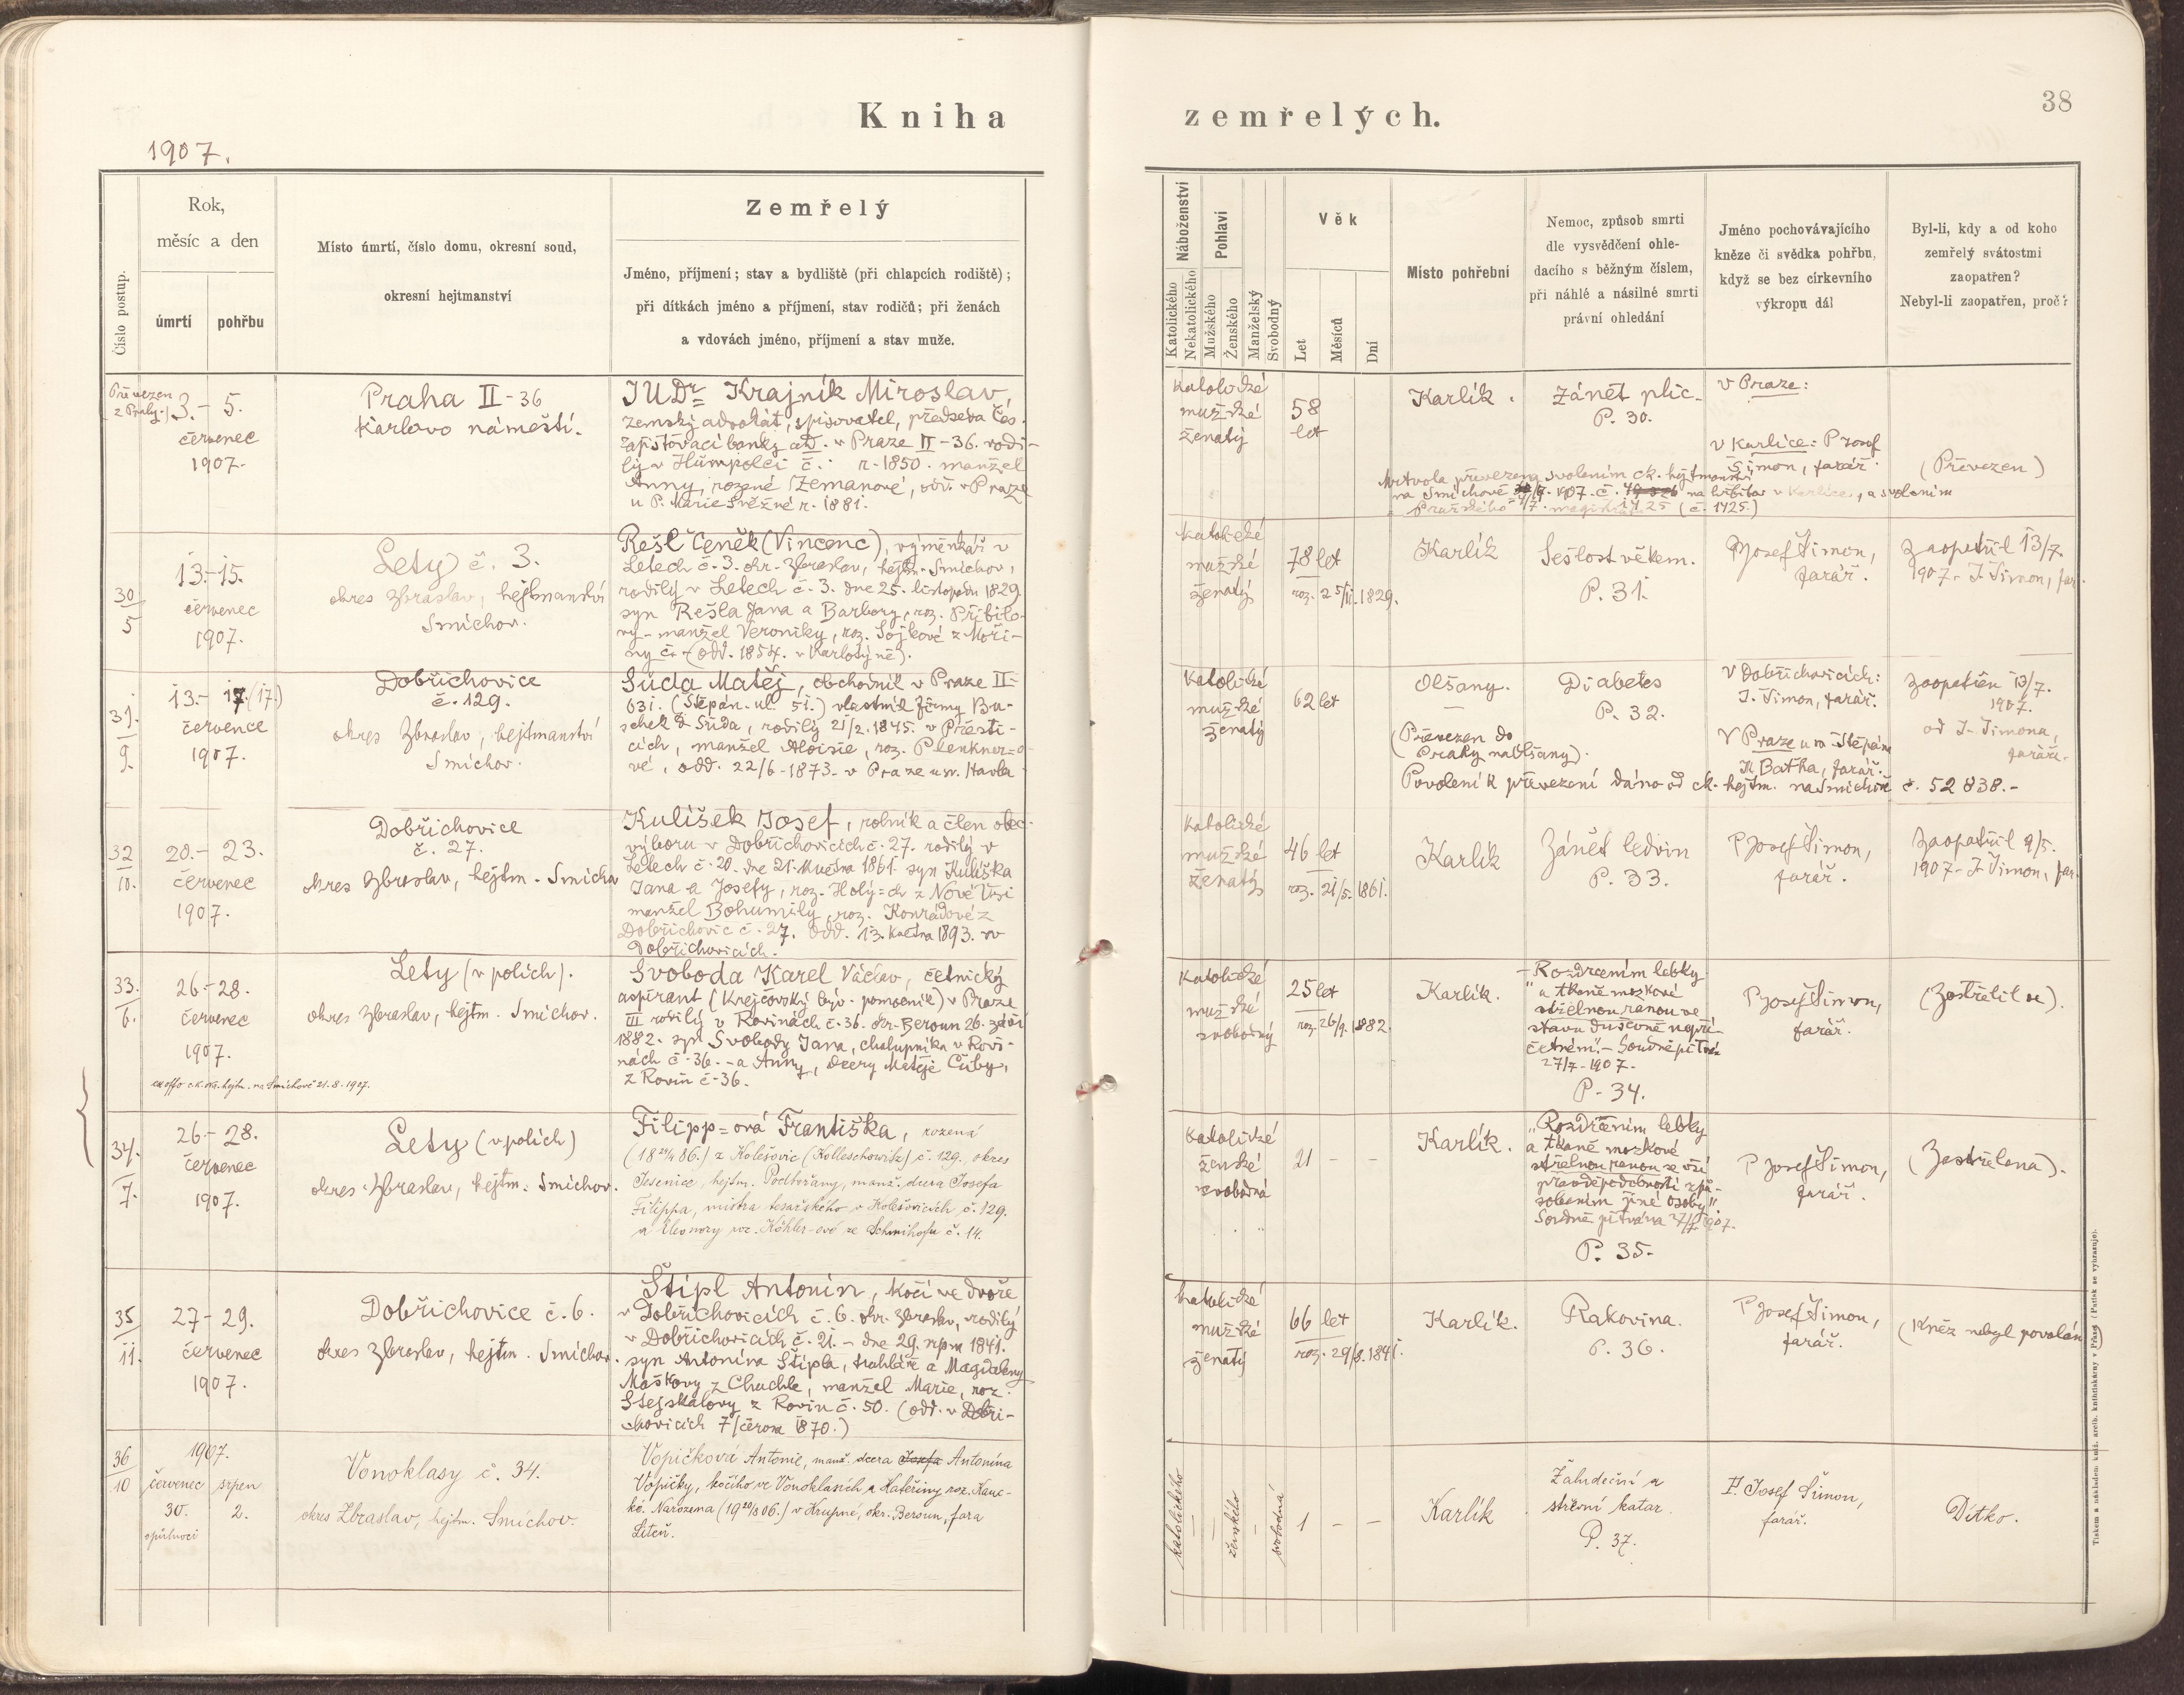 Kniha zemřelých.
38
1907.
Číslo postup.
Rok,
měsíc a den
úmrtí
pohřbu
Místo úmrtí, číslo domu, okresní soud,
okresní hejtmanství
Zemřelý
Jméno, příjmení; stav a bydliště (při chlapcích rodiště);
při dítkách jméno a příjmení, stav rodičů; při ženách
a vdovách jméno, příjmení a stav muže.
Náboženství
Katolického
Nekatolického
Pohlaví
Mužského
Ženského
Manželský
Svobodný
Věk
Let
Měsíců
Dní
Místo pohřební
Nemoc, způsob smrti
dle vysvědčení ohle-
dacího s běžným číslem,
při náhlé a násilné smrti
právní ohledání
Jméno pochovávajícího
kněze či svědka pohřbu,
když se bez církevního
výkropu dál
Byl-li, kdy a od koho
zemřelý svátostmi
zaopatřen?
Nebyl-li zaopatřen, proč?
Převezen
z Prahy.
3.- 5.
červenec
1907.
Praha II-36
Karlovo náměstí.
JUDr. Krajník Miroslav,
zemský advokát, spisovatel, předseda Čes.
zajišťovací banky atd. v Praze II-36. rodi-
lý v Humpolci č. r. 1850. manžel
Anny, rozené Zemanové, odd. v Praze
u P. Marie Sněžné r. 1881.
katolické
mužské
ženatý
58
let
Karlík.
Zánět plic.
P. 30.
v Praze:
v Karlíce: P Josef
Šimon, farář.
(Převezen)
Mrtvola převezena svolením ck. hejtmanství
na Smíchově 1907. č. na hřbitov v Karlíce, a svolením
Pražského (č. 1725.)
30
5
13.-15.
červenec
1907.
Lety č. 3.
okres Zbraslav, hejtmanství
Smíchov.
Rešl Čeněk (Vincenc), výměnkář v
Letech č. 3. okr. Zbraslav, hejtm. Smíchov,
rodilý v Letech č. 3. dne 25. listopadu 1829.
syn Rešla Jana a Barbory, roz. Přibilo-
vy - manžel Veroniky, roz. Sojkové z Moři-
ny č. - (odd. 1854. v Karlštýně).
katolické
mužské
ženatý
78 let
roz. 25/11. 1829.
Karlík
Sešlost věkem.
P. 31.
P Josef Šimon,
farář.
Zaopatřil 13/7.
1907. J. Šimon, far.
31.
9.
13.- 17. (17.)
července
1907.
Dobřichovice
č. 129.
okres Zbraslav, hejtmanství
Smíchov.
Suda Matěj, obchodník v Praze II-
631. (Štěpán. ul. 51.) vlastník firmy Bu-
schek & Suda, rodilý 21/2. 1845. v Přešti-
cích, manžel Aloisie, roz. Plenkner=o-
vé, odd. 22/6. 1873. v Praze u sv. Havla
katolické
mužské
ženatý
62 let
Olšany.
(Převezen do
Prahy na Olšany).
Diabetes
P. 32.
V Dobřichovicích:
J. Šimon, farář.
V Praze u sv. Štěpána
Baťha, farář.
zaopatřen 13/7.
1907.
od J. Šimona,
faráře.
Povolení k převezení dáno od ck. hejtm. na Smíchově č. 52838.-
32
10.
20.- 23.
červenec
1907.
Dobřichovice
č. 27.
okres Zbraslav, hejtm. Smíchov
Kulíšek Josef, rolník a člen obec.
výboru v Dobřichovicích č. 27. rodilý v
Letech č. 20. dne 21. května 1861. syn Kulíška
Jana a Josefy, roz. Holý=ch z Nové Vsi
manžel Bohumily, roz. Konrádové z
Dobřichovic č. 27. odd. 13. května 1893. v
Dobřichovicích.
katolické
mužské
ženatý
46 let
roz. 21/5. 1861.
Karlík
Zánět ledvin
P. 33.
P Josef Šimon,
farář.
Zaopatřil 9/5.
1907. J. Šimon, far.
33.
6.
26.-28.
červenec
1907.
ex offo c.k. okr. hejtm. na Smíchově 21.8.1907.
Lety (v polích).
okres Zbraslav, hejtm. Smíchov.
Svoboda Karel Václav, četnický
aspirant (krejčovský býv. pomocník) v Praze
III rodilý v Rovinách č. 36. okr. Beroun 26. září
1882. syn Svobody Jana, chalupníka v Rovi-
nách č. 36. - a Anny, dcery Matěje Čuby,
z Rovin č. 36.
katolické
mužské
svobodný
25 let
roz. 26/9. 1882.
Karlík.
- Rozdrcením lebky
a tkaně mozkové
střelnou ranou ve
stavu duševně nepří-
četném". - Soudně pitván
27/7. 1907.
P. 34.
P Josef Šimon,
farář.
(Zastřelil se).
34.
7.
26.- 28.
červenec
1907.
Lety (v polích)
okres Zbraslav, hejtm. Smíchov.
Filipp=ová Františka, rozená
(18 86.) z Kolešovic (Kolleschowitz) č. 129. okres
Jesenice, hejtm. Podbořany, manž. dcera Josefa
Filippa, mistra tesařského v Kolešovicích č. 129.
a Eleonory roz. Köhler-ové ze Schmihofu č. 14.
katolické
ženské
svobodná
21 - -
Karlík.
"Rozdrcením lebky
a tkaně mozkové
střelnou ranou se vší
pravděpodobností způ-
sobením jiné osoby".
Soudně pitvána 27/7. 1907.
P. 35.
P Josef Šimon,
farář.
(Zastřelena).
35
11.
27- 29.
červenec
1907.
Dobřichovice č. 6.
okres Zbraslav, hejtm. Smíchov.
Štípl Antonín, kočí ve dvoře
v Dobřichovicích č. 6. okr. Zbraslav, rodilý
v Dobřichovicích č. 21. - dne 29. srpna 1841.
syn Antonína Štípla, truhláře a Magdaleny
Maškovy z Chuchle, manžel Marie, roz.
Stejskalovy z Rovin č. 50. (odd. v Dobři-
chovicích 7/června 1870.)
katolické
mužské
ženatý
66 let
roz. 29/8. 1841.
Karlík.
Rakovina.
P. 36.
P Josef Šimon,
farář.
(Kněz nebyl povolán)
36
10
1907.
červenec srpen
30. 2.
o půlnoci
Vonoklasy č. 34.
okres Zbraslav, hejtm. Smíchov.
Vopičková Antonie, manž. dcera Josefa Antonína
Vopičky, kočího ve Vonoklasích a Kateřiny roz. Kauc-
ké. Narozena (19 06.) v Krupné, okr. Beroun, fara
Liteň.
katolického
—
—
ženského
—
svobodná
1 - -
Karlík
Žaludeční a
střevní katar.
P. 37.
P. Josef Šimon,
farář.
Dítko.